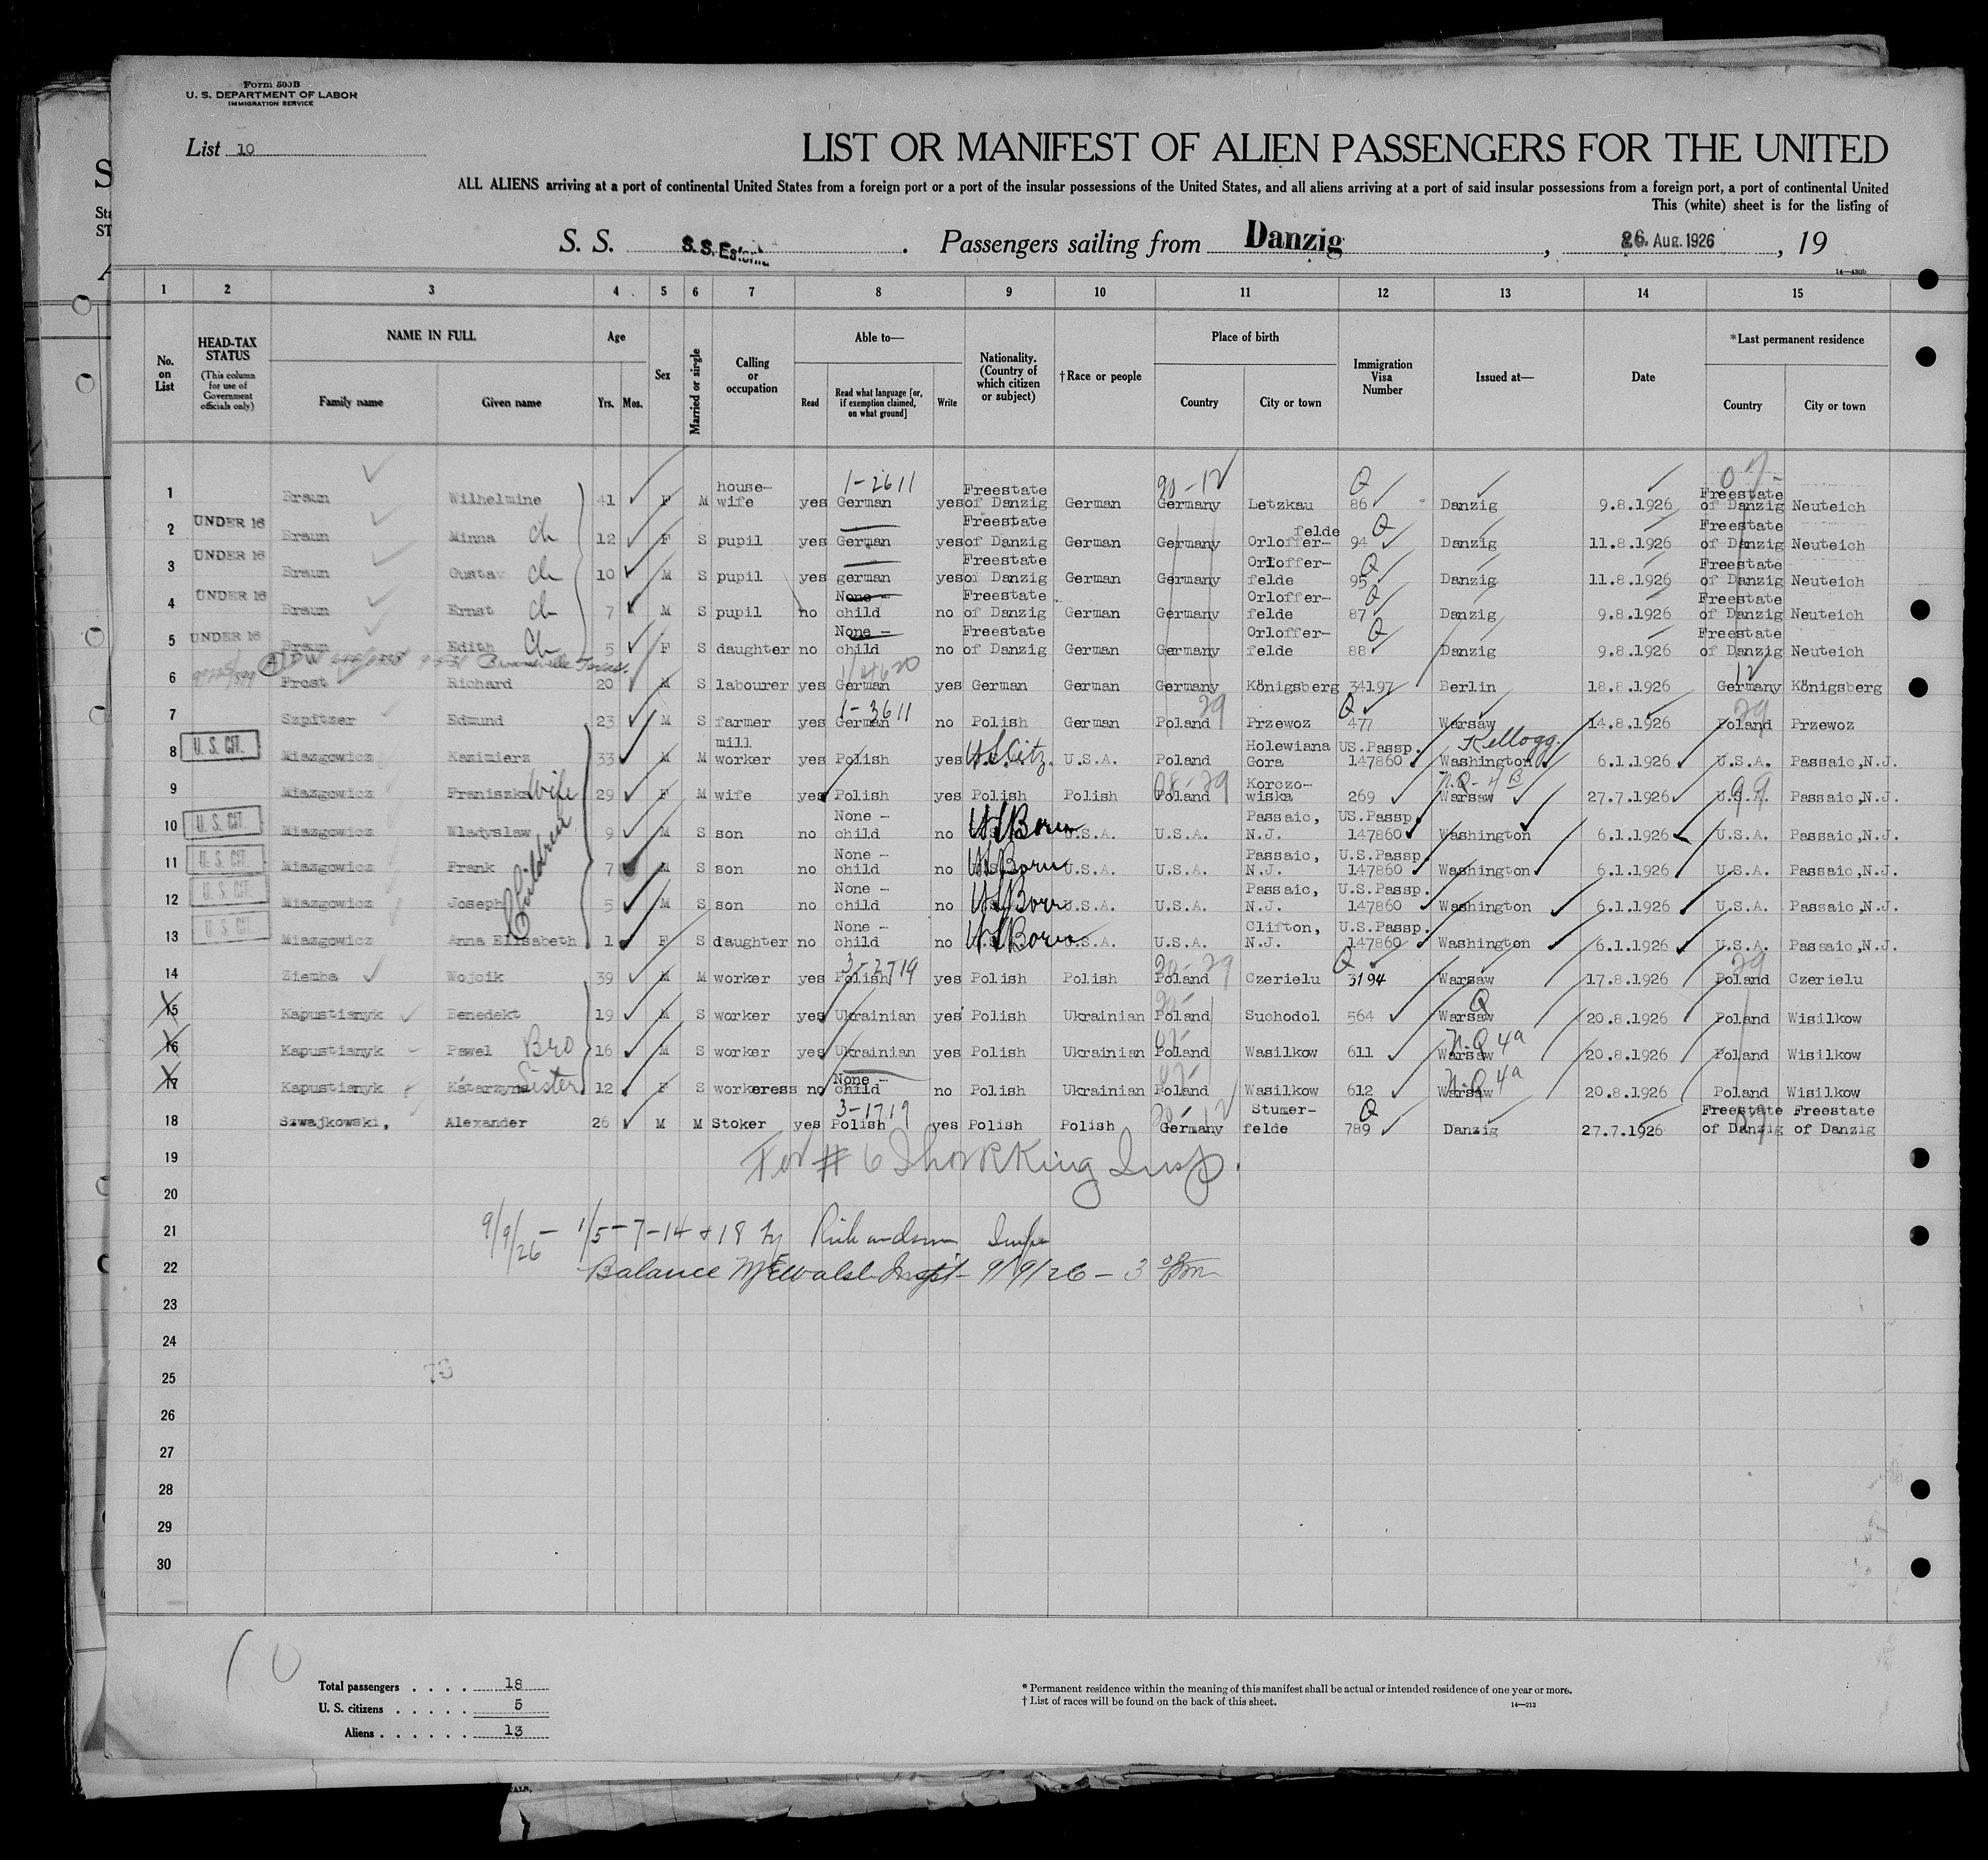 Form 500B
U. S. DEPARTMENT OF LABOR
IMMIGRATION SERVICE
List 10
LIST OR MANIFEST OF ALIEN PASSENGERS FOR THE UNITED
ALL ALIENS arriving at a port of continental United States from a foreign port or a port of the insular possessions of the United States, and all aliens arriving at a port of said insular possessions from a foreign port, a port of continental United
This (white) sheet is for the listing of
S. S. S.S. Estonia. Passengers sailing from Danzig, 26. Aug. 1926, 19
14—430b
1 2 3 4 5 6 7 8 9 10 11 12 13 14 15
No. on List
HEAD-TAX STATUS (This column for use of Government officials only)
NAME IN FULL Family name Given name
Age Yrs. Mos.
Sex
Married or single
Calling or occupation
Able to— Read Read what language [or, if exemption claimed, on what ground] Write
Nationality. (Country of which citizen or subject)
†Race or people
Place of birth Country City or town
Immigration Visa Number
Issued at—
Date
*Last permanent residence Country City or town
1 Braun Wilhelmine 41 F M house-wife yes German 1-2611 yes Freestate of Danzig German Germany Letzkau Q 86 Danzig 9.8.1926 Freestate of Danzig Neuteich
2 UNDER 16 Braun Minna ch 12 F S pupil yes German yes Freestate of Danzig German Germany Orlofferfelde Q 94 Danzig 11.8.1926 Freestate of Danzig Neuteich
3 UNDER 16 Braun Gustav ch 10 M S pupil yes german yes Freestate of Danzig German Germany Orloffer-felde Q 95 Danzig 11.8.1926 Freestate of Danzig Neuteich
4 UNDER 16 Braun Ernst ch 7 M S pupil no None - child no Freestate of Danzig German Germany Orloffer-felde Q 87 Danzig 9.8.1926 Freestate of Danzig Neuteich
5 UNDER 16 Braun Edith Ch 5 F S daughter no None - child no Freestate of Danzig German Germany Orloffer-felde Q 88 Danzig 9.8.1926 Freestate of Danzig Neuteich
6 Frost Richard 20 M S labourer yes German yes German German Germany Königsberg 34197 Berlin 18.8.1926 Germany Königsberg
7 Szpitzer Edmund 23 M S farmer yes German 1-3611 no Polish German Poland Przewoz Q 477 Warsaw 14.8.1926 Poland Przewoz
8 U. S. CIT. Miazgowicz Kazimierz 33 M M mill worker yes Polish yes U.S. Citz. U.S.A. Poland Holewiana Gora US.Passp. 147860 Washington Kellogg. 6.1.1926 U.S.A. Passaic,N.J.
9 Miazgowicz Franiszka Wife 29 F M wife yes Polish yes Polish Polish Poland Korczo-wiska 269 Warsaw 27.7.1926 U.S.A. Passaic,N.J.
Children
10 U. S. CIT. Miazgowicz Wladyslaw 9 M S son no None - child no US Born U.S.A. U.S.A. Passaic, N.J. US.Passp. 147860 Washington 6.1.1926 U.S.A. Passaic,N.J.
11 U. S. CIT. Miazgowicz Frank 7 M S son no None - child no US Born U.S.A. U.S.A. Passaic, N.J. U.S.Passp. 147860 Washington 6.1.1926 U.S.A. Passaic,N.J.
12 U. S. CIT. Miazgowicz Joseph 5 M S son no None - child no US Born U.S.A. U.S.A. Passaic, N.J. U.S.Passp. 147860 Washington 6.1.1926 U.S.A. Passaic,N.J.
13 U. S. CIT. Miazgowicz Anna Elisabeth 1 F S daughter no None - child no US Born U.S.A. U.S.A. Clifton, N.J. U.S.Passp. 147860 Washington 6.1.1926 U.S.A. Passaic,N.J.
14 Ziemba Wojcik 39 M M worker yes Polish yes Polish Polish Poland Czerielu Q 3194 Warsaw 17.8.1926 Poland Czerielu
15 Kapustianyk Benedekt 19 M S worker yes Ukrainian yes Polish Ukrainian Poland Suchodol 564 Warsaw Q 20.8.1926 Poland Wisilkow
16 Kapustianyk Pawel Bro 16 M S worker yes Ukrainian yes Polish Ukrainian Poland Wasilkow 611 Warsaw N.Q 4a 20.8.1926 Poland Wisilkow
17 Kapustianyk Katarzyna Sister 12 F S workeress no None - child no Polish Ukrainian Poland Wasilkow 612 Warsaw N.Q 4a 20.8.1926 Poland Wisilkow
18 Szwajkowski, Alexander 26 M M Stoker yes Polish 3-1719 yes Polish Polish Germany Stumer-felde Q 789 Danzig 27.7.1926 Freestate of Danzig Freestate of Danzig
19
For # 6 King Insp.
20
21 9/9/26 — 1/5-7-14 & 18 by Richardson Insp
22 Balance Walsh Inspt - 9/9/26 - 3
23
24
25
26
27
28
29
30
10
Total passengers . . . . 18
U. S. citizens . . . . . 5
Aliens . . . . . . 13
* Permanent residence within the meaning of this manifest shall be actual or intended residence of one year or more.
† List of races will be found on the back of this sheet.
14—213